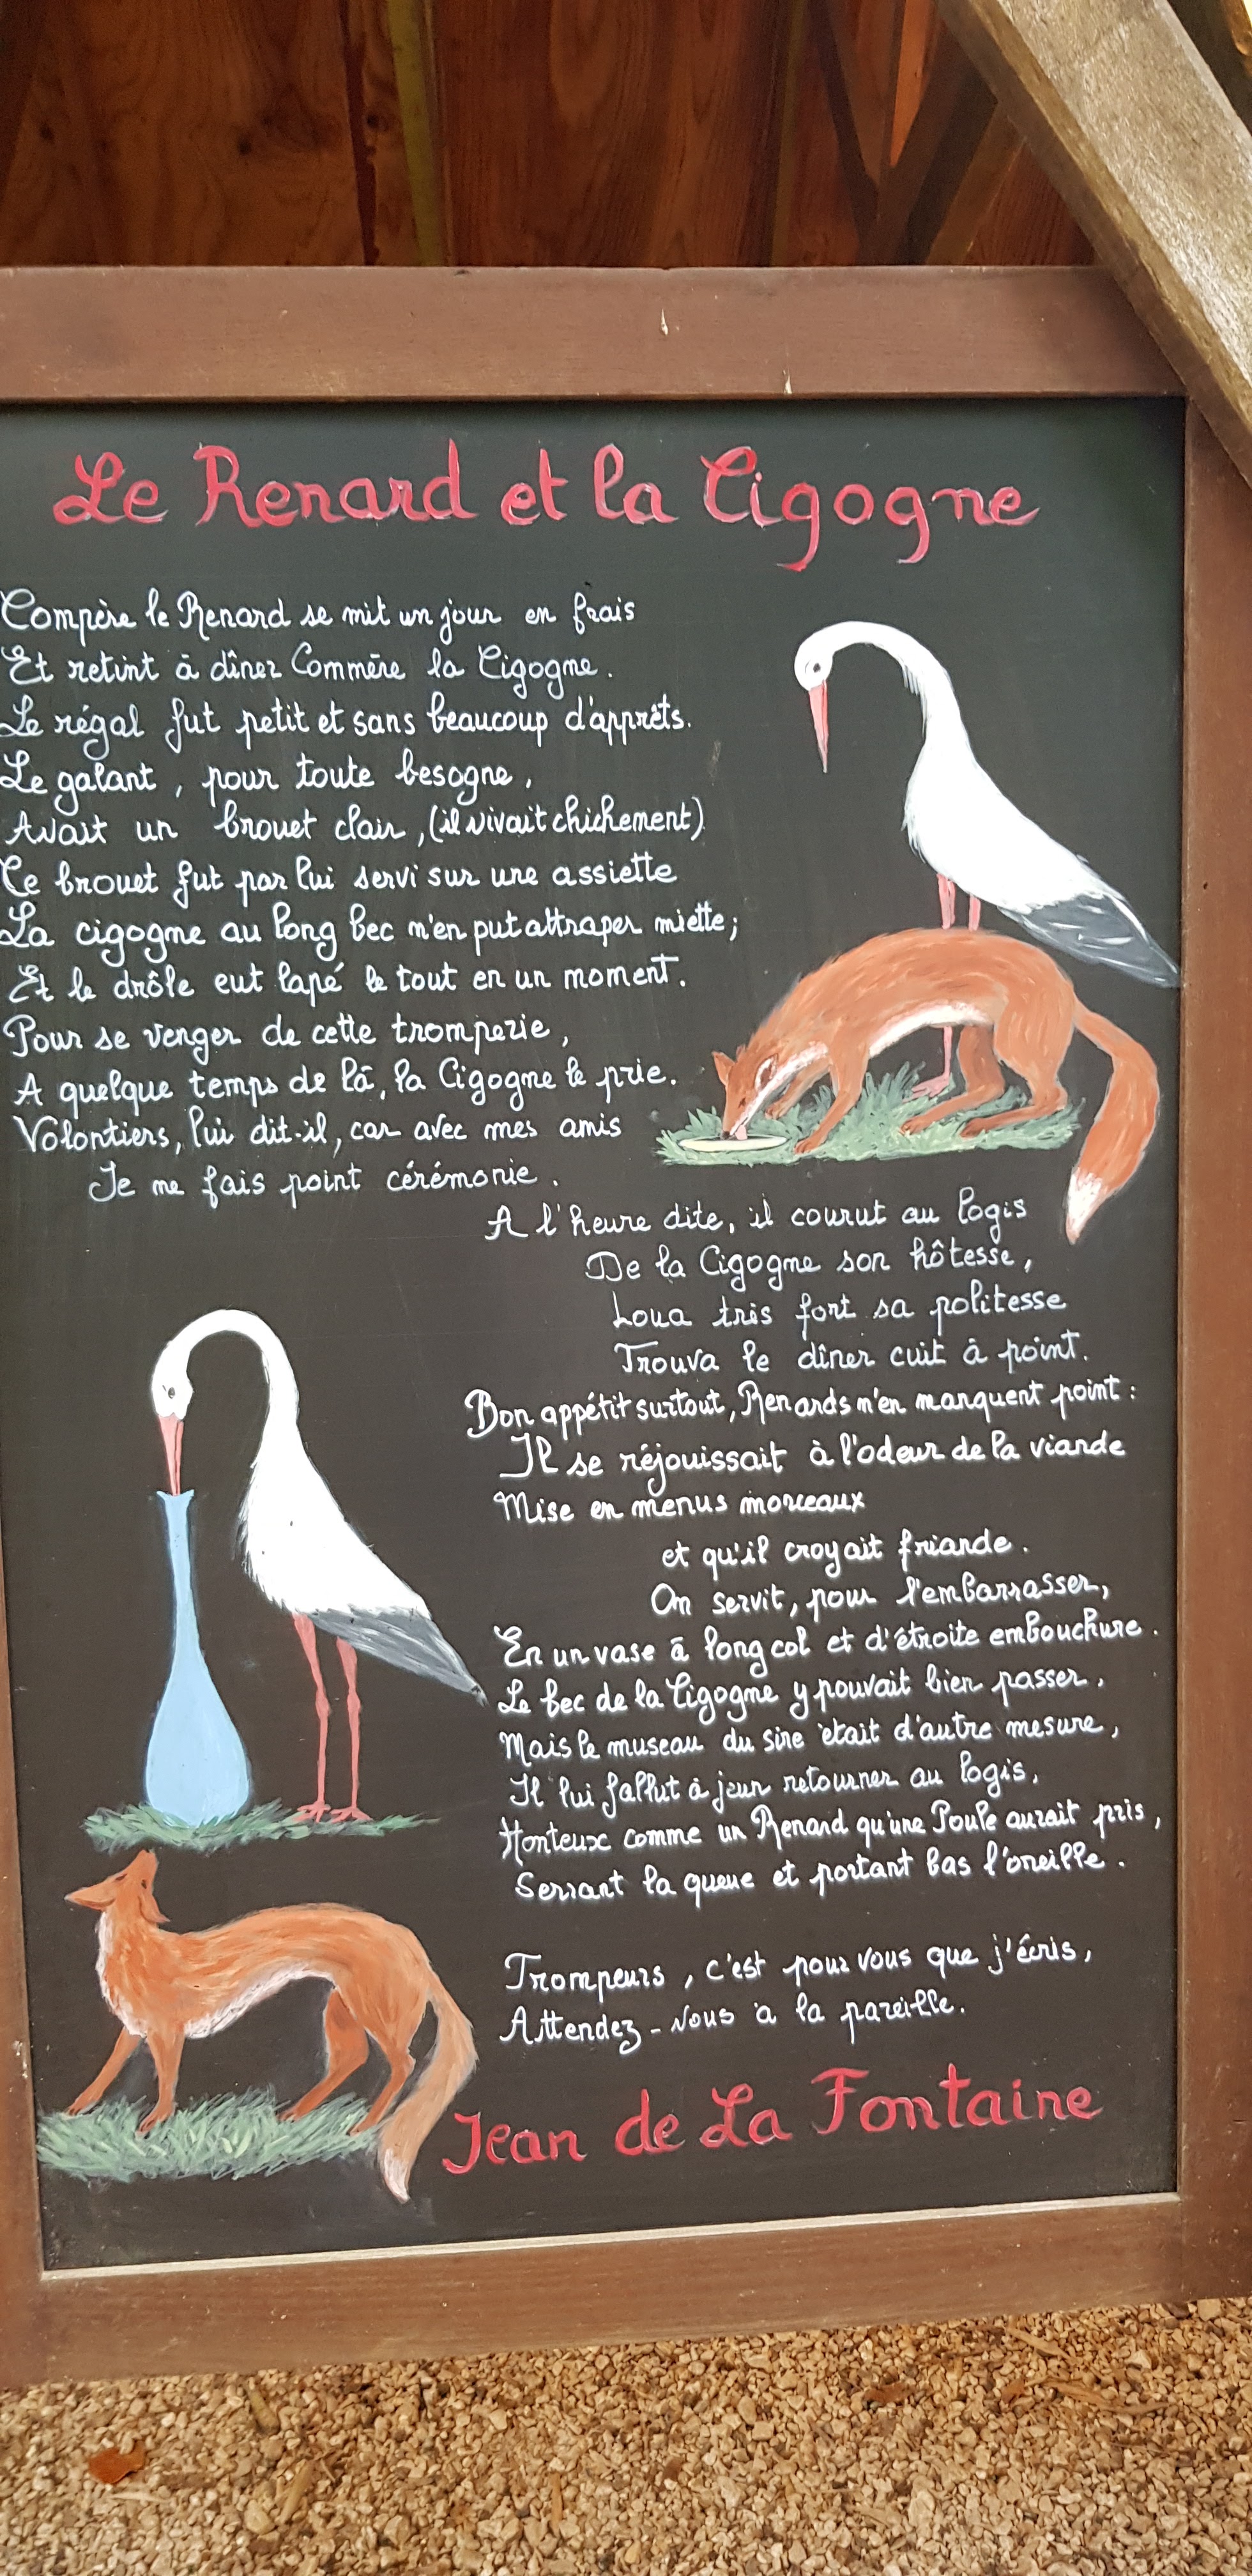 Le Renard et la Cigogne
Compère le Renard se mit un jour en frais
Et retint à dîner Commère la Cigogne.
Le régal fut petit et sans beaucoup d'apprêts.
Le galant, pour toute besogne,
Avait un brouet clair, (il vivait chichement)
Ce brouet fut par lui servi sur une assiette
La cigogne au long bec n'en put attraper miette;
Et le drôle eut lapé le tout en un moment.
Pour se venger de cette tromperie,
A quelque temps de là, la Cigogne le prie.
Volontiers, lui dit-il, car avec mes amis
Je ne fais point cérémonie.
A l'heure dite, il courut au logis
De la Cigogne son hôtesse,
Loua très fort sa politesse
Trouva le dîner cuit à point.
Bon appétit surtout, Renards n'en manquent point :
Il se réjouissait à l'odeur de la viande
Mise en menus morceaux
et qu'il croyait friande.
On servit, pour l'embarrasser,
En un vase à long col et d'étroite embouchure.
Le bec de la Cigogne y pouvait bien passer,
Mais le museau du sire était d'autre mesure,
Il lui fallut à jeun retourner au logis,
Honteux comme un Renard qu'une Poule aurait pris,
Serrant la queue et portant bas l'oreille.
Trompeurs, c'est pour vous que j'écris,
Attendez-vous à la pareille.
Jean de La Fontaine